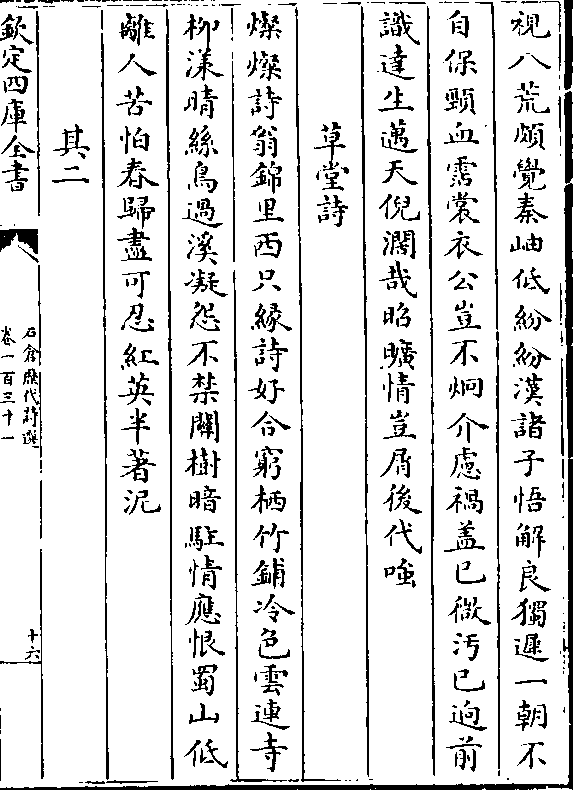 視八荒頗覺秦岫低紛紛漢諸子悟解良獨遲一朝不
自保頸血霑裳衣公豈不炯介慮禍蓋已微污已逈前
識達生邁天倪濶哉昭曠情豈屑後代嗤
草堂詩
燦燦詩翁錦里西只緣詩好合窮栖竹鋪冷色雲連寺
柳漾晴絲鳥過溪凝怨不禁關樹暗駐情應恨蜀山低
離人苦怕春歸盡可忍紅英半著泥
其二
欽定四庫全書
石倉歷代詩選
卷一百三十一
十六